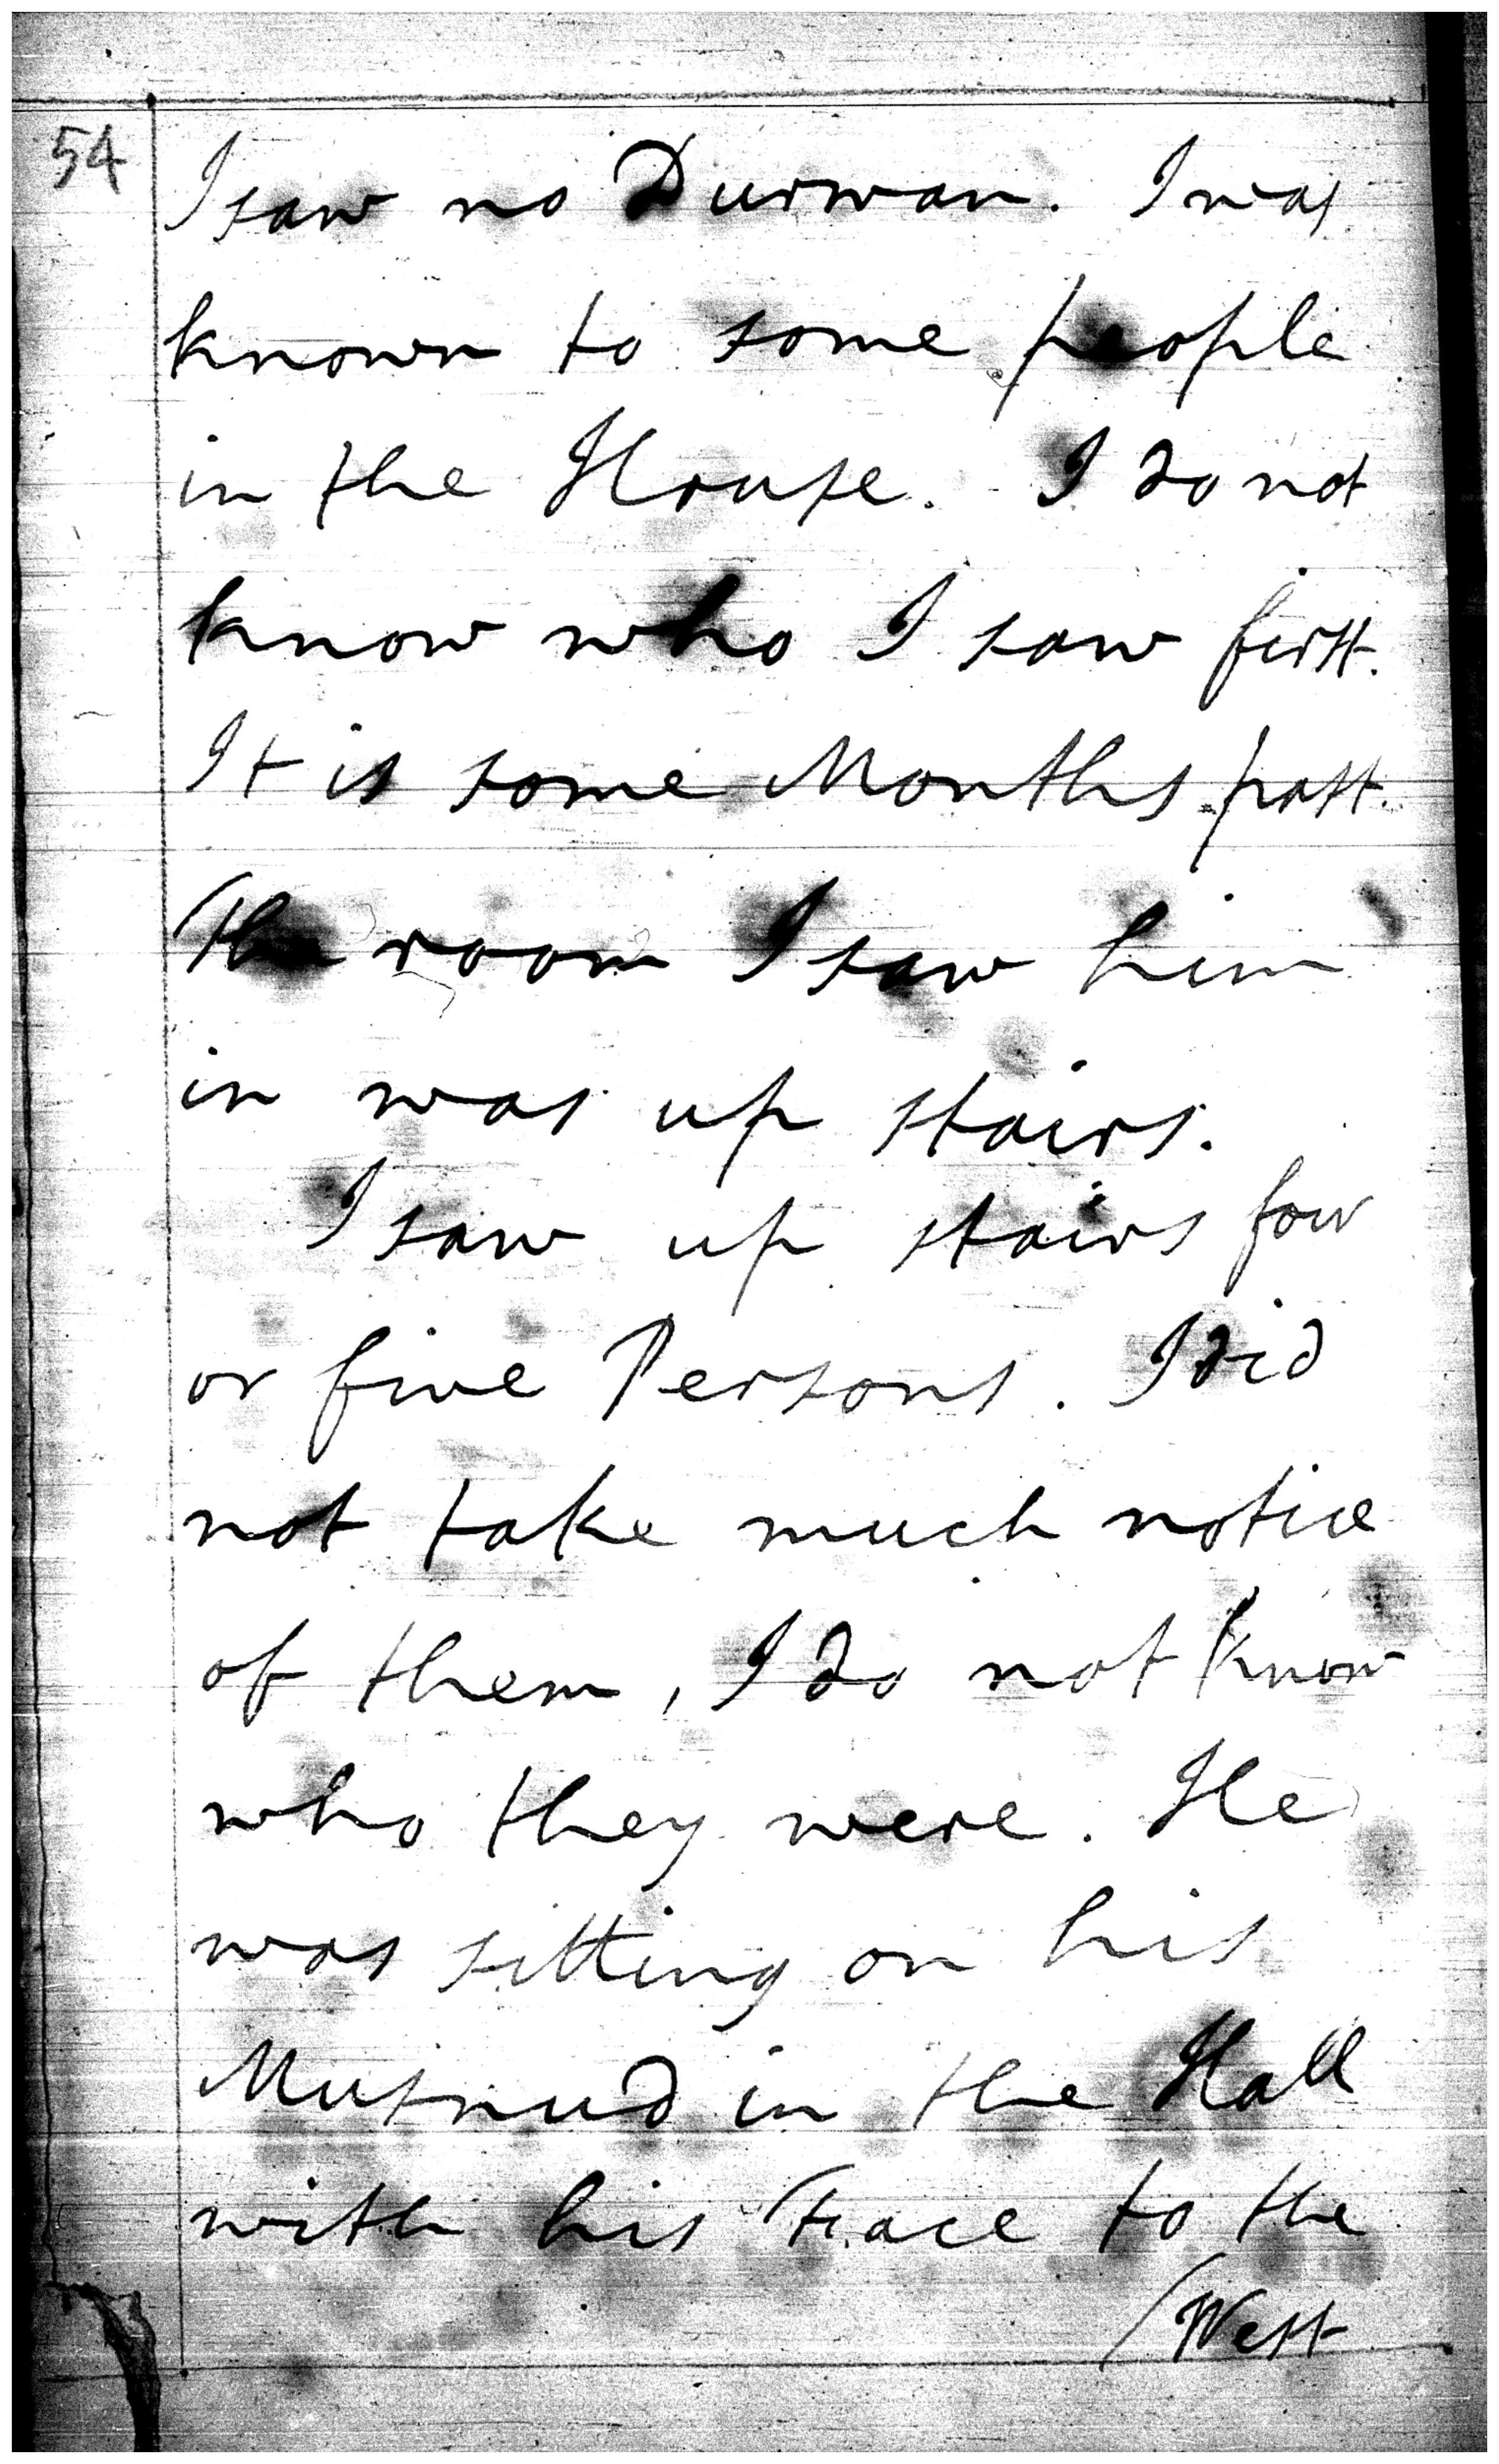 54
I saw no Durwan. I was
known to some people
in the House. I do not
know who I saw first.
It is some Months past.
The room I saw him
in was up stairs.
I saw up stairs four
or five Persons. I did
not take much notice
of them, I do not know
who they were. He
was sitting on his
Musnud in the Hall
with his Face to the
West